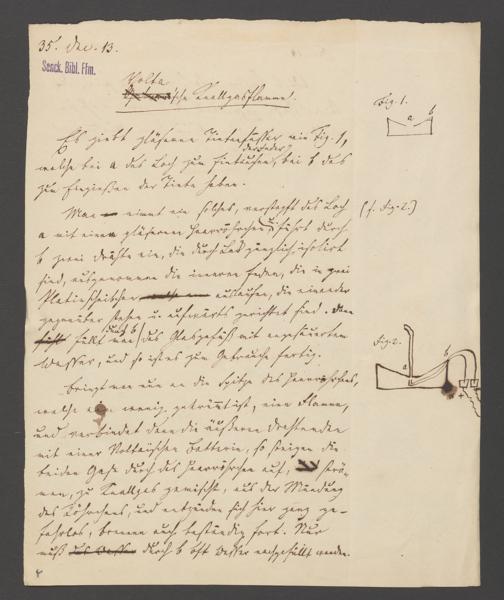 35. Dec. 13.
Senck. Bibl. Ffm.
Volta
ische Knallgasflamme.
Es giebt gläserne Tintenfässer wie Fig. 1,
der Feder
welche bei a das Loch zum Eintauchen, bei b das
zum Eingießen der Tinte haben.
Man nimmt ein solches, verstopft das Loch
a mit einem gläsernen Haarröhrchen u. führt durch
b zwei Drähte ein, die durch Lack gänzlich isolirt
sind, ausgenommen die inneren Enden, die in zwei
Platinscheibchen auslaufen, die einander
gegenüber stehen u. aufwärts gerichtet sind. Dann
durch b
füllt man das Glasgefäß mit angesäuertem
Wasser, und so ist es zum Gebrauche fertig.
Bringt man nun an die Spitze des Haarröhrchens,
welche ein wenig gekrümmt ist, eine Flamme,
und verbindet dann die äußeren Drahtenden
mit einer Voltaischen Batterie, so steigen die
beiden Gase durch das Haarröhrchen auf, strö-
men, zu Knallgas gemischt, aus der Mündung
des Röhrchens, und entzünden sich hier ganz ge-
fahrlos, brennen auch beständig fort. Nur
muß durch b oft Wasser nachgefüllt werden.
Fig. 1.
a b
(s. Fig. 2.)
Fig. 2.
a b
+ -